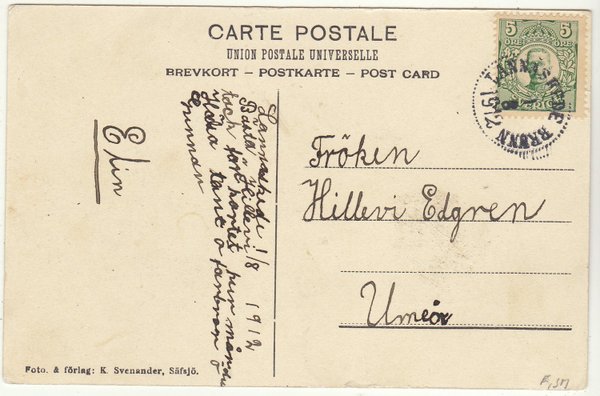 CARTE POSTALE
UNION POSTALE UNIVERSELLE
BREVKORT – POSTKARTE – POST CARD
5 5
ÖRE ÖRE
LANNASKEDE BRUNN
1912
Fröken
Hillevi Edgren
Umeå
Lannaskede 1/8 1912
Bästa Hillevi!
tack för kortet
Hälsa tant o farbror
Elin
Foto. & förlag: K. Svenander, Säfsjö.